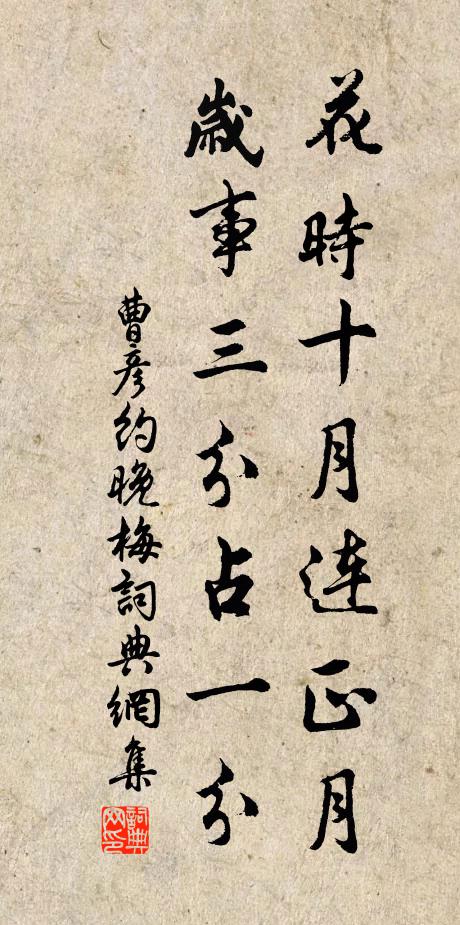 花時十月連正月
歲事三分占一分
曹彥約晚梅詞典網集
詞典網印